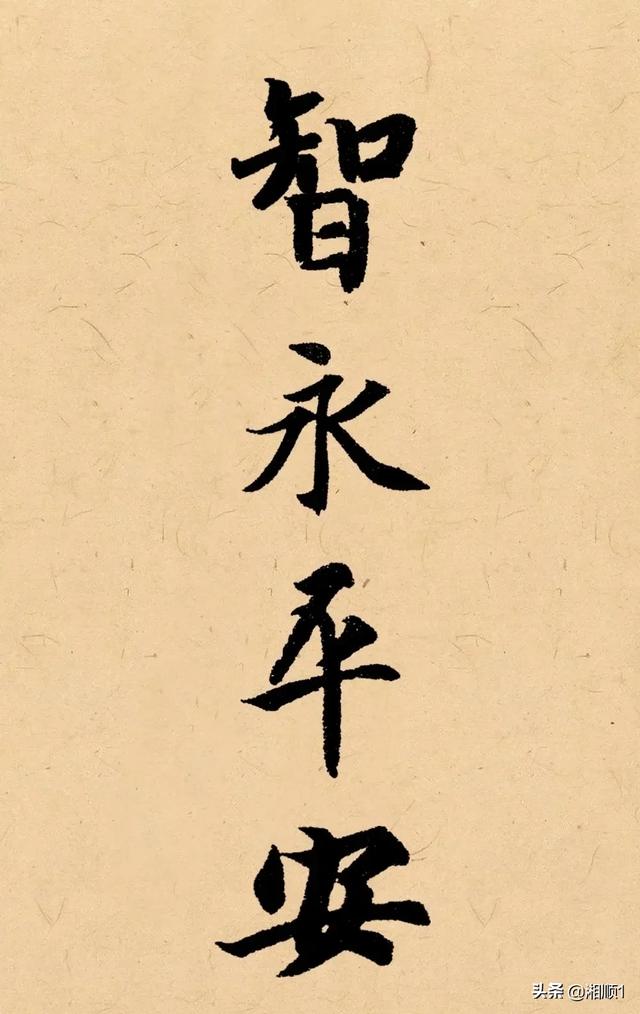 智永平安
头条 @湘顺1